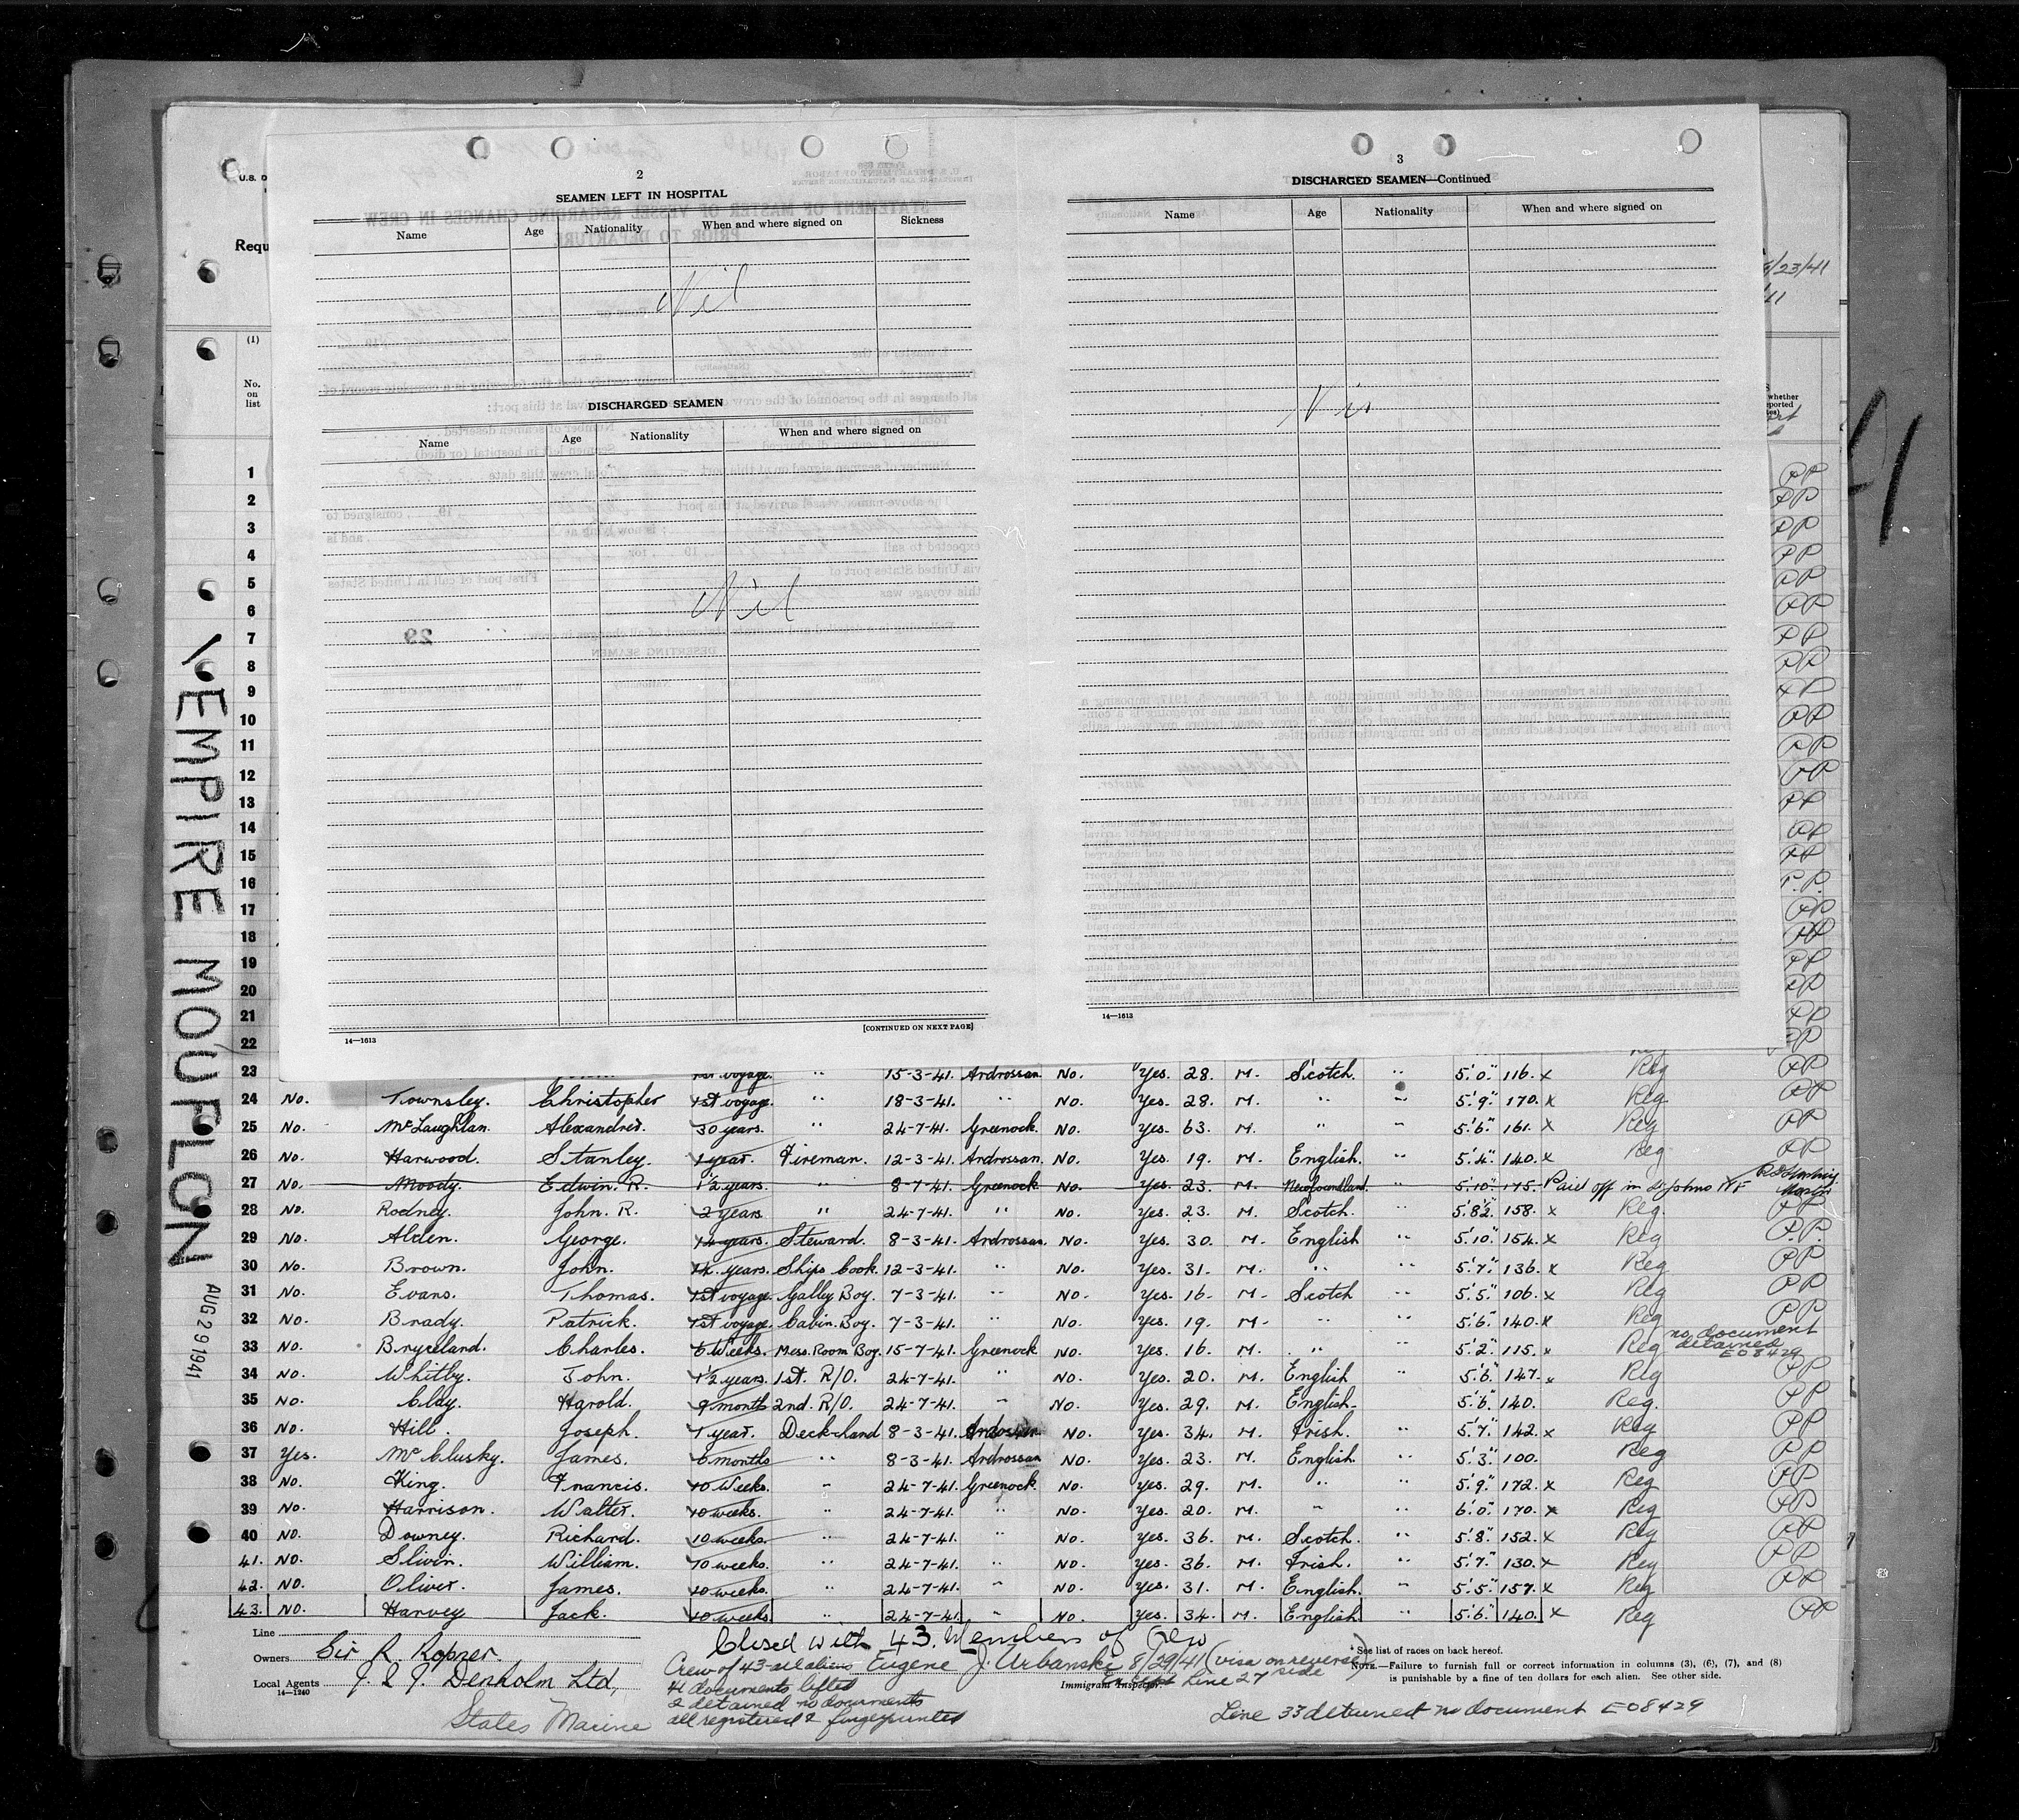 U.S. D
Requ
2
SEAMEN LEFT IN HOSPITAL
Name Age Nationality When and where signed on Sickness
Nil
DISCHARGED SEAMEN
Name Age Nationality When and where signed on
Nil
14—1613
[CONTINUED ON NEXT PAGE]
3
DISCHARGED SEAMEN—Continued
Name Age Nationality When and where signed on
Nil
14—1613
/23/41
(1)
No. on list
whether
1 PP
2 PP
3 PP
4 PP
5 PP
6 PP
7 PP
8 PP
9 PP
10 PP
11 PP
12 PP
13 PP
14 PP
15 PP
16 P.P.
17 PP
18 PP
19 PP
20 PP
21 PP
22 PP
EMPIRE MOUFLON
AUG 29 1941
23 1st voyage. " 15-3-41. Ardrossan. No. Yes. 28. M. Scotch. " 5'.0". 116. x Reg PP
24 No. Townsley. Christopher 1st voyage. " 18-3-41. " No. Yes. 28. M. " " 5'.9". 170. x Reg. PP
25 No. McLaughlan. Alexandred. 30 years. " 24-7-41. Greenock. No. Yes. 63. M. " " 5'.6". 161. x Reg PP
26 No. Harwood. Stanley. 1 year. Fireman. 12-3-41. Ardrossan. No. Yes. 19. M. English. " 5'.4". 140. x Reg PP
27 No. Moody. Edwin. R. 1½ years. " 8-7-41. Greenock No. Yes. 23. M. Newfoundland. " 5'.10". 175. Paid off in St Johns NF
28 No. Rodney. John. R. 2 years " 24-7-41. " No. Yes. 23. M. Scotch. " 5'.8½". 158. x Reg. PP
29 No. Alden. George. 14 years. Steward. 8-3-41. Ardrossan. No. Yes. 30. M. English " 5'.10". 154. x Reg P.P.
30 No. Brown. John. 14 years. Ships Cook. 12-3-41. " No. Yes. 31. M. " " 5'.7". 136. x Reg PP
31 No. Evans. Thomas. 1st voyage. Galley Boy. 7-3-41. " No. Yes. 16. M. Scotch " 5'.5". 106. x Reg PP
32 No. Brady. Patrick. 1st voyage. Cabin. Boy. 7-3-41. " No. Yes. 19. M. " " 5'.6". 140. x Reg PP
33 No. Bryceland. Charles. 6 Weeks. Mess. Room Boy. 15-7-41. Greenock No. Yes. 16 M. " " 5'.2". 115. x Reg no document detained E08429
34 No. Whitby. John. 1½ years. 1st. R/O. 24-7-41. " No. Yes. 20. M. English " 5'.6". 147. x Reg PP
35 No. Clay. Harold. 9 month 2nd. R/O. 24-7-41. " No. Yes. 29. M. English. 5'.6". 140. Reg. PP
36 No. Hill. Joseph. 1 year. Deck-hand 8-3-41. Ardrossan No. Yes. 34. M. Irish. " 5'.7". 142. x Reg PP
37 Yes. McClusky. James. 6 months " 8-3-41. Ardrossan No. Yes. 23. M. English. " 5'.3". 100. Reg PP
38 No. King. Francis. 10 Weeks. " 24-7-41. Greenock. No. Yes. 29. M. " " 5'.9". 172. x Reg PP
39 No. Harrison. Walter. 10 weeks. " 24-7-41. " No. Yes. 20. M. " " 6'.0". 170. x Reg PP
40 No. Downey. Richard. 10 weeks. " 24-7-41. " No. Yes. 36. M. Scotch. " 5'.8". 152. x Reg PP
41. No. Slivin. William. 10 weeks. " 24-7-41. " No. Yes. 36. M. Irish. " 5'.7". 130. x Reg PP
42. No. Oliver. James. 10 weeks. " 24-7-41. " No. Yes. 31. M. English. " 5'.5". 157. x Reg PP
43. No. Harvey Jack. 10 weeks. " 24-7-41. " No. Yes. 34. M. English. " 5'.6". 140. x Reg PP
Line
Owners Sir R. Ropner.
Local Agents J. & J. Denholm Ltd,
14—1240
States Marine
Closed with 43. Members of Crew
Crew of 43 all aliens Eugene J. Urbanski 8/29/41 (visa on reverse side)
41 documents lifted
Immigrant Inspector. Line 27
2 detained no documents
all registered 2 fingerprinted
* See list of races on back hereof.
NOTE.—Failure to furnish full or correct information in columns (3), (6), (7), and (8)
is punishable by a fine of ten dollars for each alien. See other side.
Line 33 detained no document E08429